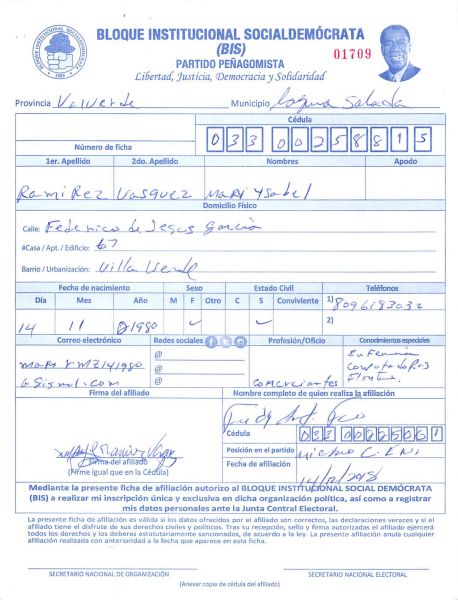 BLOQUE INSTITUCIONAL SOCIALDEMÓCRATA
(BIS)
PARTIDO PEÑAGOMISTA
Libertad, Justicia, Democracia y Solidaridad
01709
Provincia Valverde Municipio Laguna Salada
Cédula
Número de ficha 033 0025881 5
1er. Apellido 2do. Apellido Nombres Apodo
RamiRez Vasquez MaRy Ysabel
Domicilio Físico
Calle: Federico de Jesus Garcia
#Casa / Apt. / Edificio: 67
Barrio / Urbanización: Villa Verde
Fecha de nacimiento Sexo Estado Civil Teléfonos
Día Mes Año M F Otro C S Conviviente 1) 8096183032
14 11 1980 ✓ ✓ 2)
Correo electrónico Redes sociales Profesión/Oficio Conocimientos especiales
@
@
@
comerciante
Firma del afiliado Nombre completo de quien realiza la afiliación
Cédula 033
Posición en el partido
Firma del afiliado
(Firme Igual que en la Cédula)
Fecha de afiliación 14/12/2018
Mediante la presente ficha de afiliación autorizo al BLOQUE INSTITUCIONAL SOCIAL DEMÓCRATA
(BIS) a realizar mi inscripción única y exclusiva en dicha organización política, así como a registrar
mis datos personales ante la Junta Central Electoral.
La presente ficha de afiliación es válida si los datos ofrecidos por el afiliado son correctos, las declaraciones veraces y si el
afiliado tiene el disfrute de sus derechos civiles y políticos. Tras su recepción, sello y firma autorizada el afiliado ejercerá
todos los derechos y los deberes estatutariamente sancionados, de acuerdo a la afiliación. La presente afiliación anula cualquier
afiliación realizada con anterioridad a la fecha que aparece en esta ficha.
SECRETARIO NACIONAL DE ORGANIZACIÓN SECRETARIO NACIONAL ELECTORAL
(Anexar copia de cédula del afiliado)